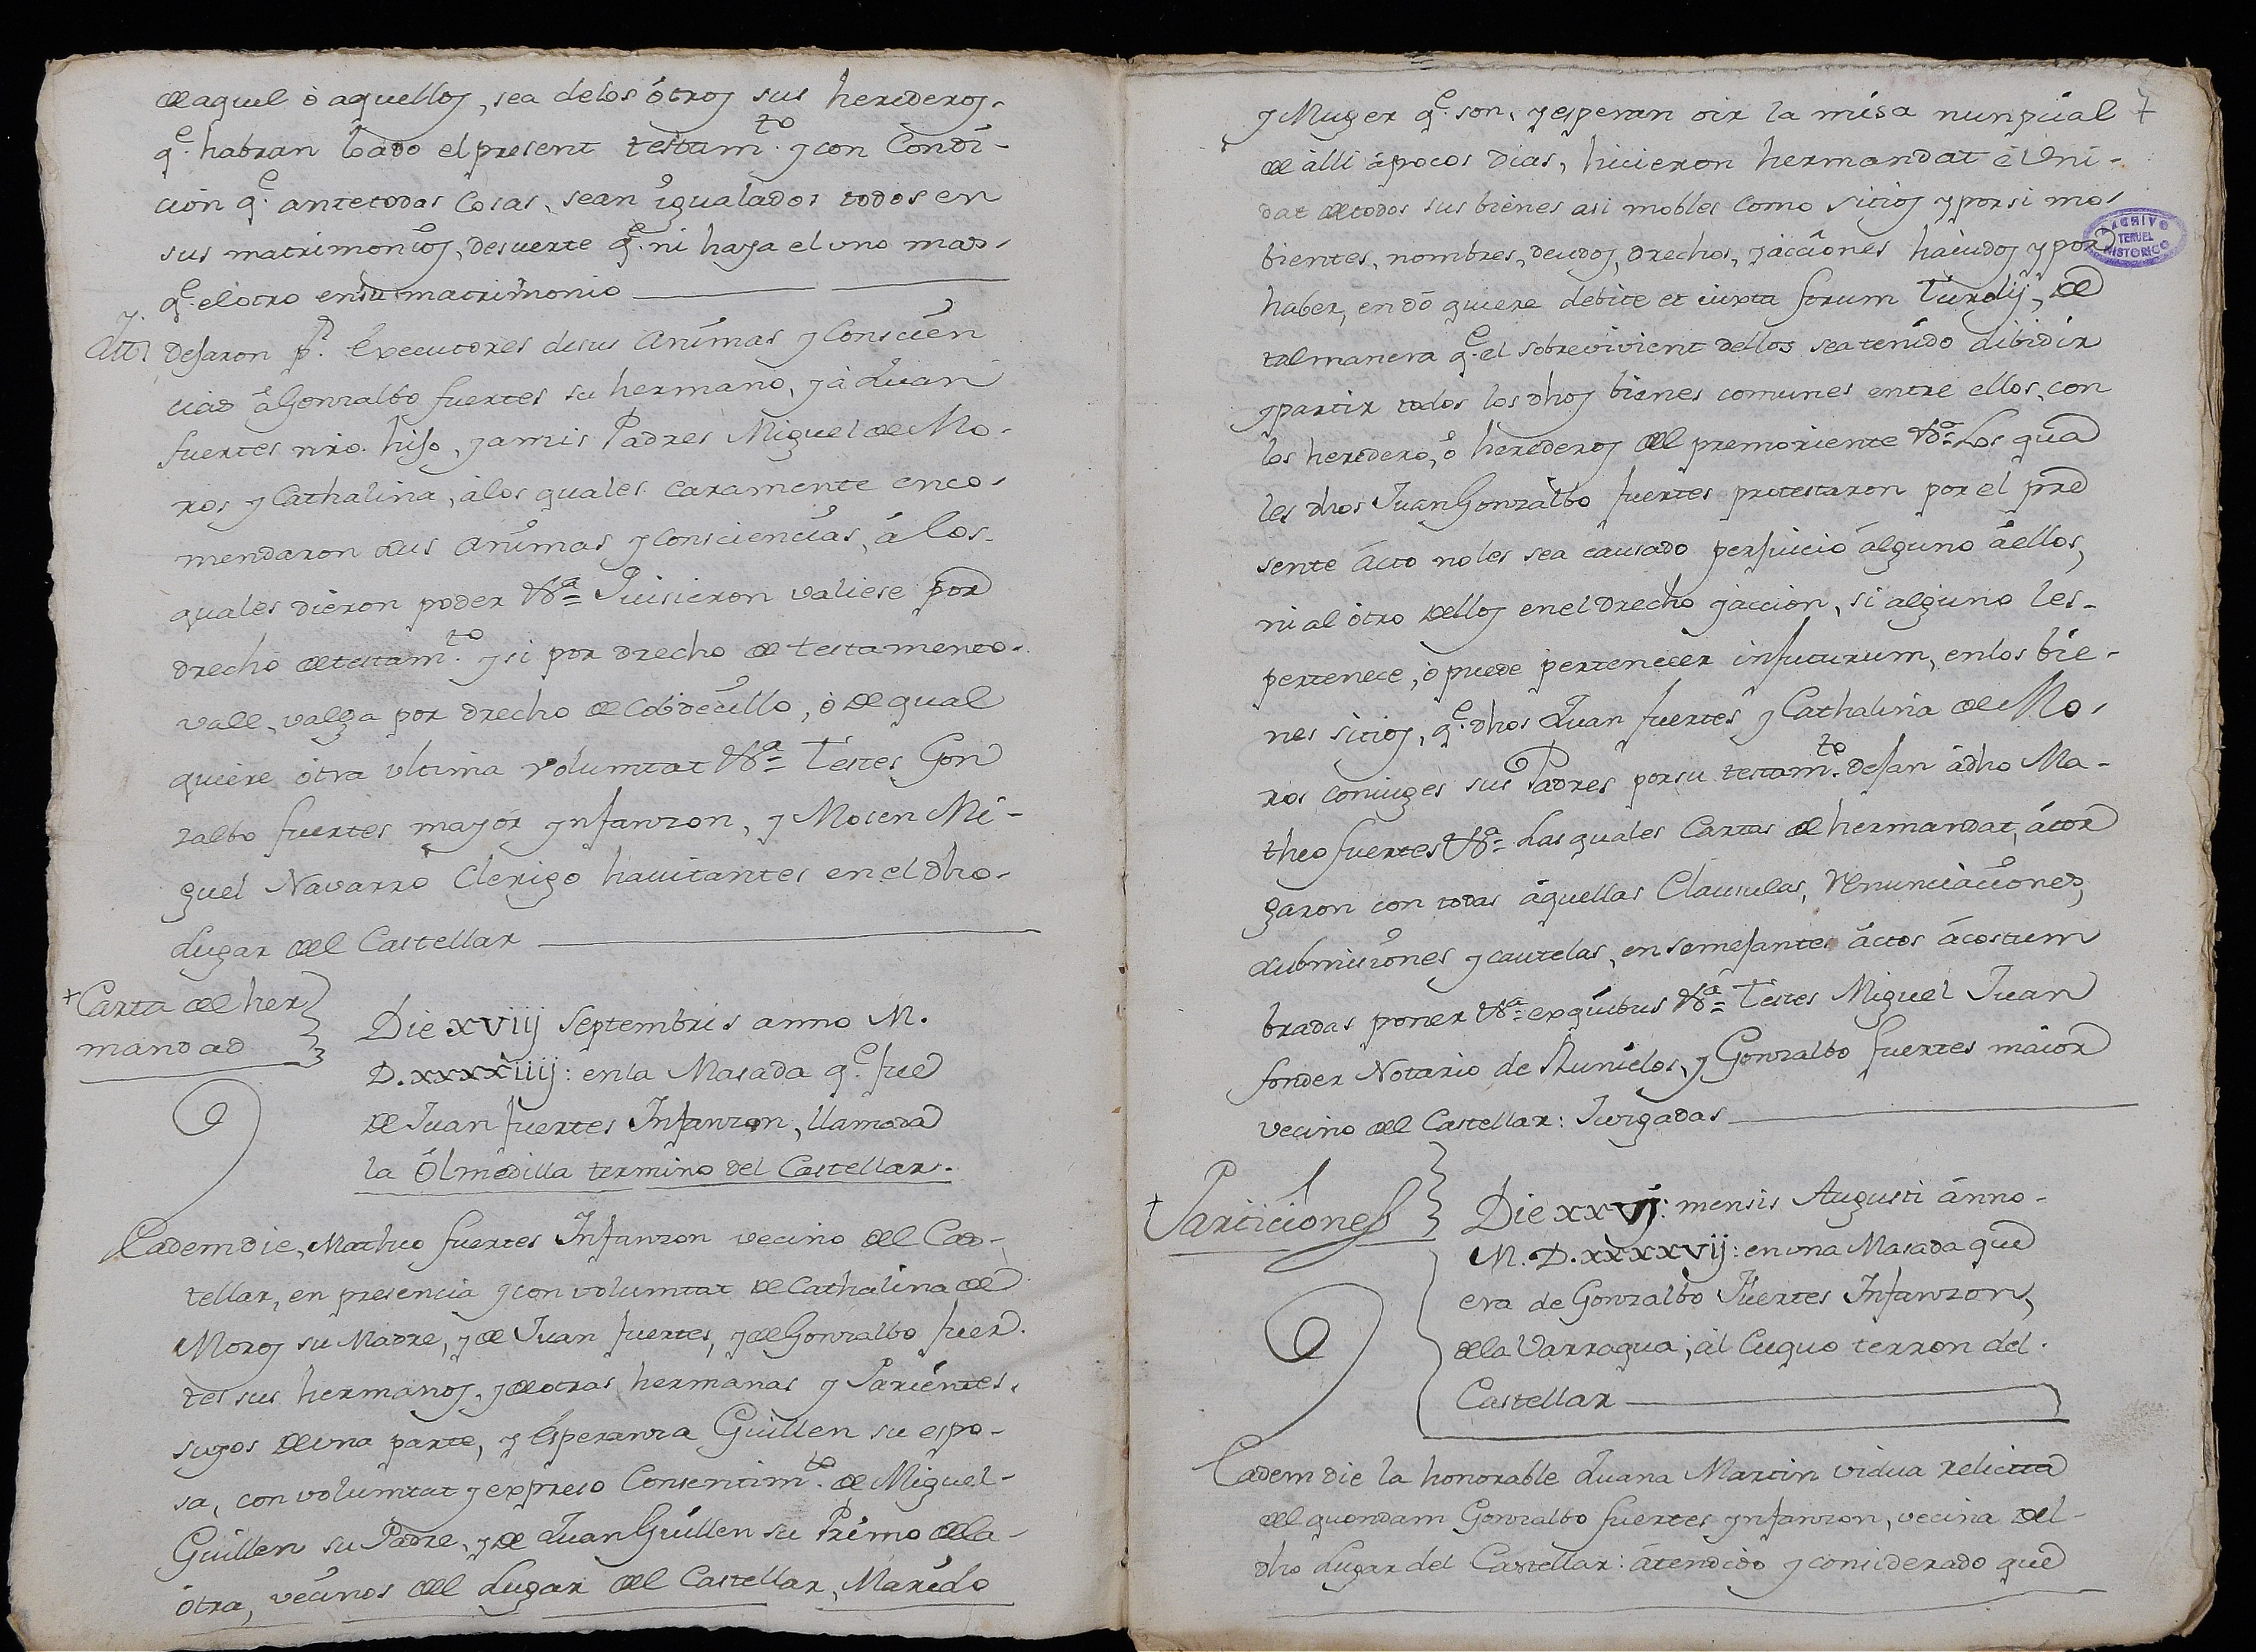 de aquel ò aquellos, sea delos ótros sus herederos.
q.e habran loado el present testam.to y con Condi-
cion q.e antetodas Cosas, sean igualados todos en
sus matrimonios, desuerte q.e ni haya el uno mas
q.e elotro ensu matrimonio
dejaron p.r Executores desus Animas y Conscien
cias â Gonzalbo fuertes su hermano, y à Juan
fuertes nro. hijo, y amis Padres Miguel de Mo-
ros y Cathalina, álos quales caramente enco-
mendaron sus animas y consciencias, á los-
quales dieron poder &a Quisieron valiese por
drecho de testam.to y si por drecho de testamento.
vale, valga por drecho de Cobdecillo, ò de qual
quiere ótra ultima voluntat &a Testes Gon
zalbo fuertes mayór ynfanzon, y Mosen Mi-
guel Navarro Clerigo havitantes en el dho-
Lugar del Castellar
+ Carta de her
mandad
Die xviij Septembris anno M.
D.xxxxiiij: enla Masada q.e fue
de Juan fuertes Infanzon, llamada
la Ólmedilla termino del Castellar.
Eadem die, Matheo fuertes Infanzon vecino del Cas-
tellar, en presencia y con voluntat de Cathalina de
Moros su Madre, y de Juan fuertes, y de Gonzalbo fuer.
tes sus hermanos, y de otras hermanas y Parientes.
suyos de una parte, y Esperanza Guillen su espo-
sa, con voluntat y expreso Consentim.to de Miguel-
Guillen su Padre, y de Juan Guillen su Primo dela-
ótra, vecinos del Lugar del Castellar, Marido
7
y Muger q.e son, y esperan oir la misa nunpcial
de álli ápocos dias, hicieron hermandat è Uni-
dat de todos sus bienes asi mobles como sitios y por si mo
bientes, nombres, deudos, drechos, y acciones haiudos y por
haber, en dó quiere debite et iuxta forum Turolij, de
tal manera q.e el sobrevivient dellos sea tenido dibidir
y partir todos los dhos bienes comunes entre ellos, con
los heredero, ò herederos del premoriente &a Los qua
les dhos Juan Gonzalbo fuertes protestaron por el pre
sente ácto noles sea causado perjuicio álguno áellos,
ni al ótro dellos en el drecho y accion, si alguno les-
pertenece, ò puede pertenecer infuturum, enlos bie-
nes sitios, q.e dhos Juan fuertes y Cathalina de Mo-
ros coniuges sus Padres por su testam.to dejan ádho Ma-
theo fuertes &a Las quales Cartas de hermandat, átor
garon con todas áquellas Clausulas, renunciaciones,
submisiones y cautelas, en semejantes áctos ácostum
bradas poner &a exquibus &a Testes Miguel Juan
fonder Notario de Runielos, y Gonzalbo fuertes maior
vecino del Castellar: Jurgadas
+ Particiones
Die xxvj: mensis Augusti ánno-
M.D.xxxxvij: en una Masada que
era de Gonzalbo Fuertes Infanzon,
dela Varragua; ál Cuquo terron del.
Castellar
Eadem die la honorable Juana Martin vidua relicta
del quondam Gonzalbo fuertes ynfanzon, vecina del-
dho Lugar del Castellar: átendido y considerado que
ARCHIVO
TERUEL
HISTORICO